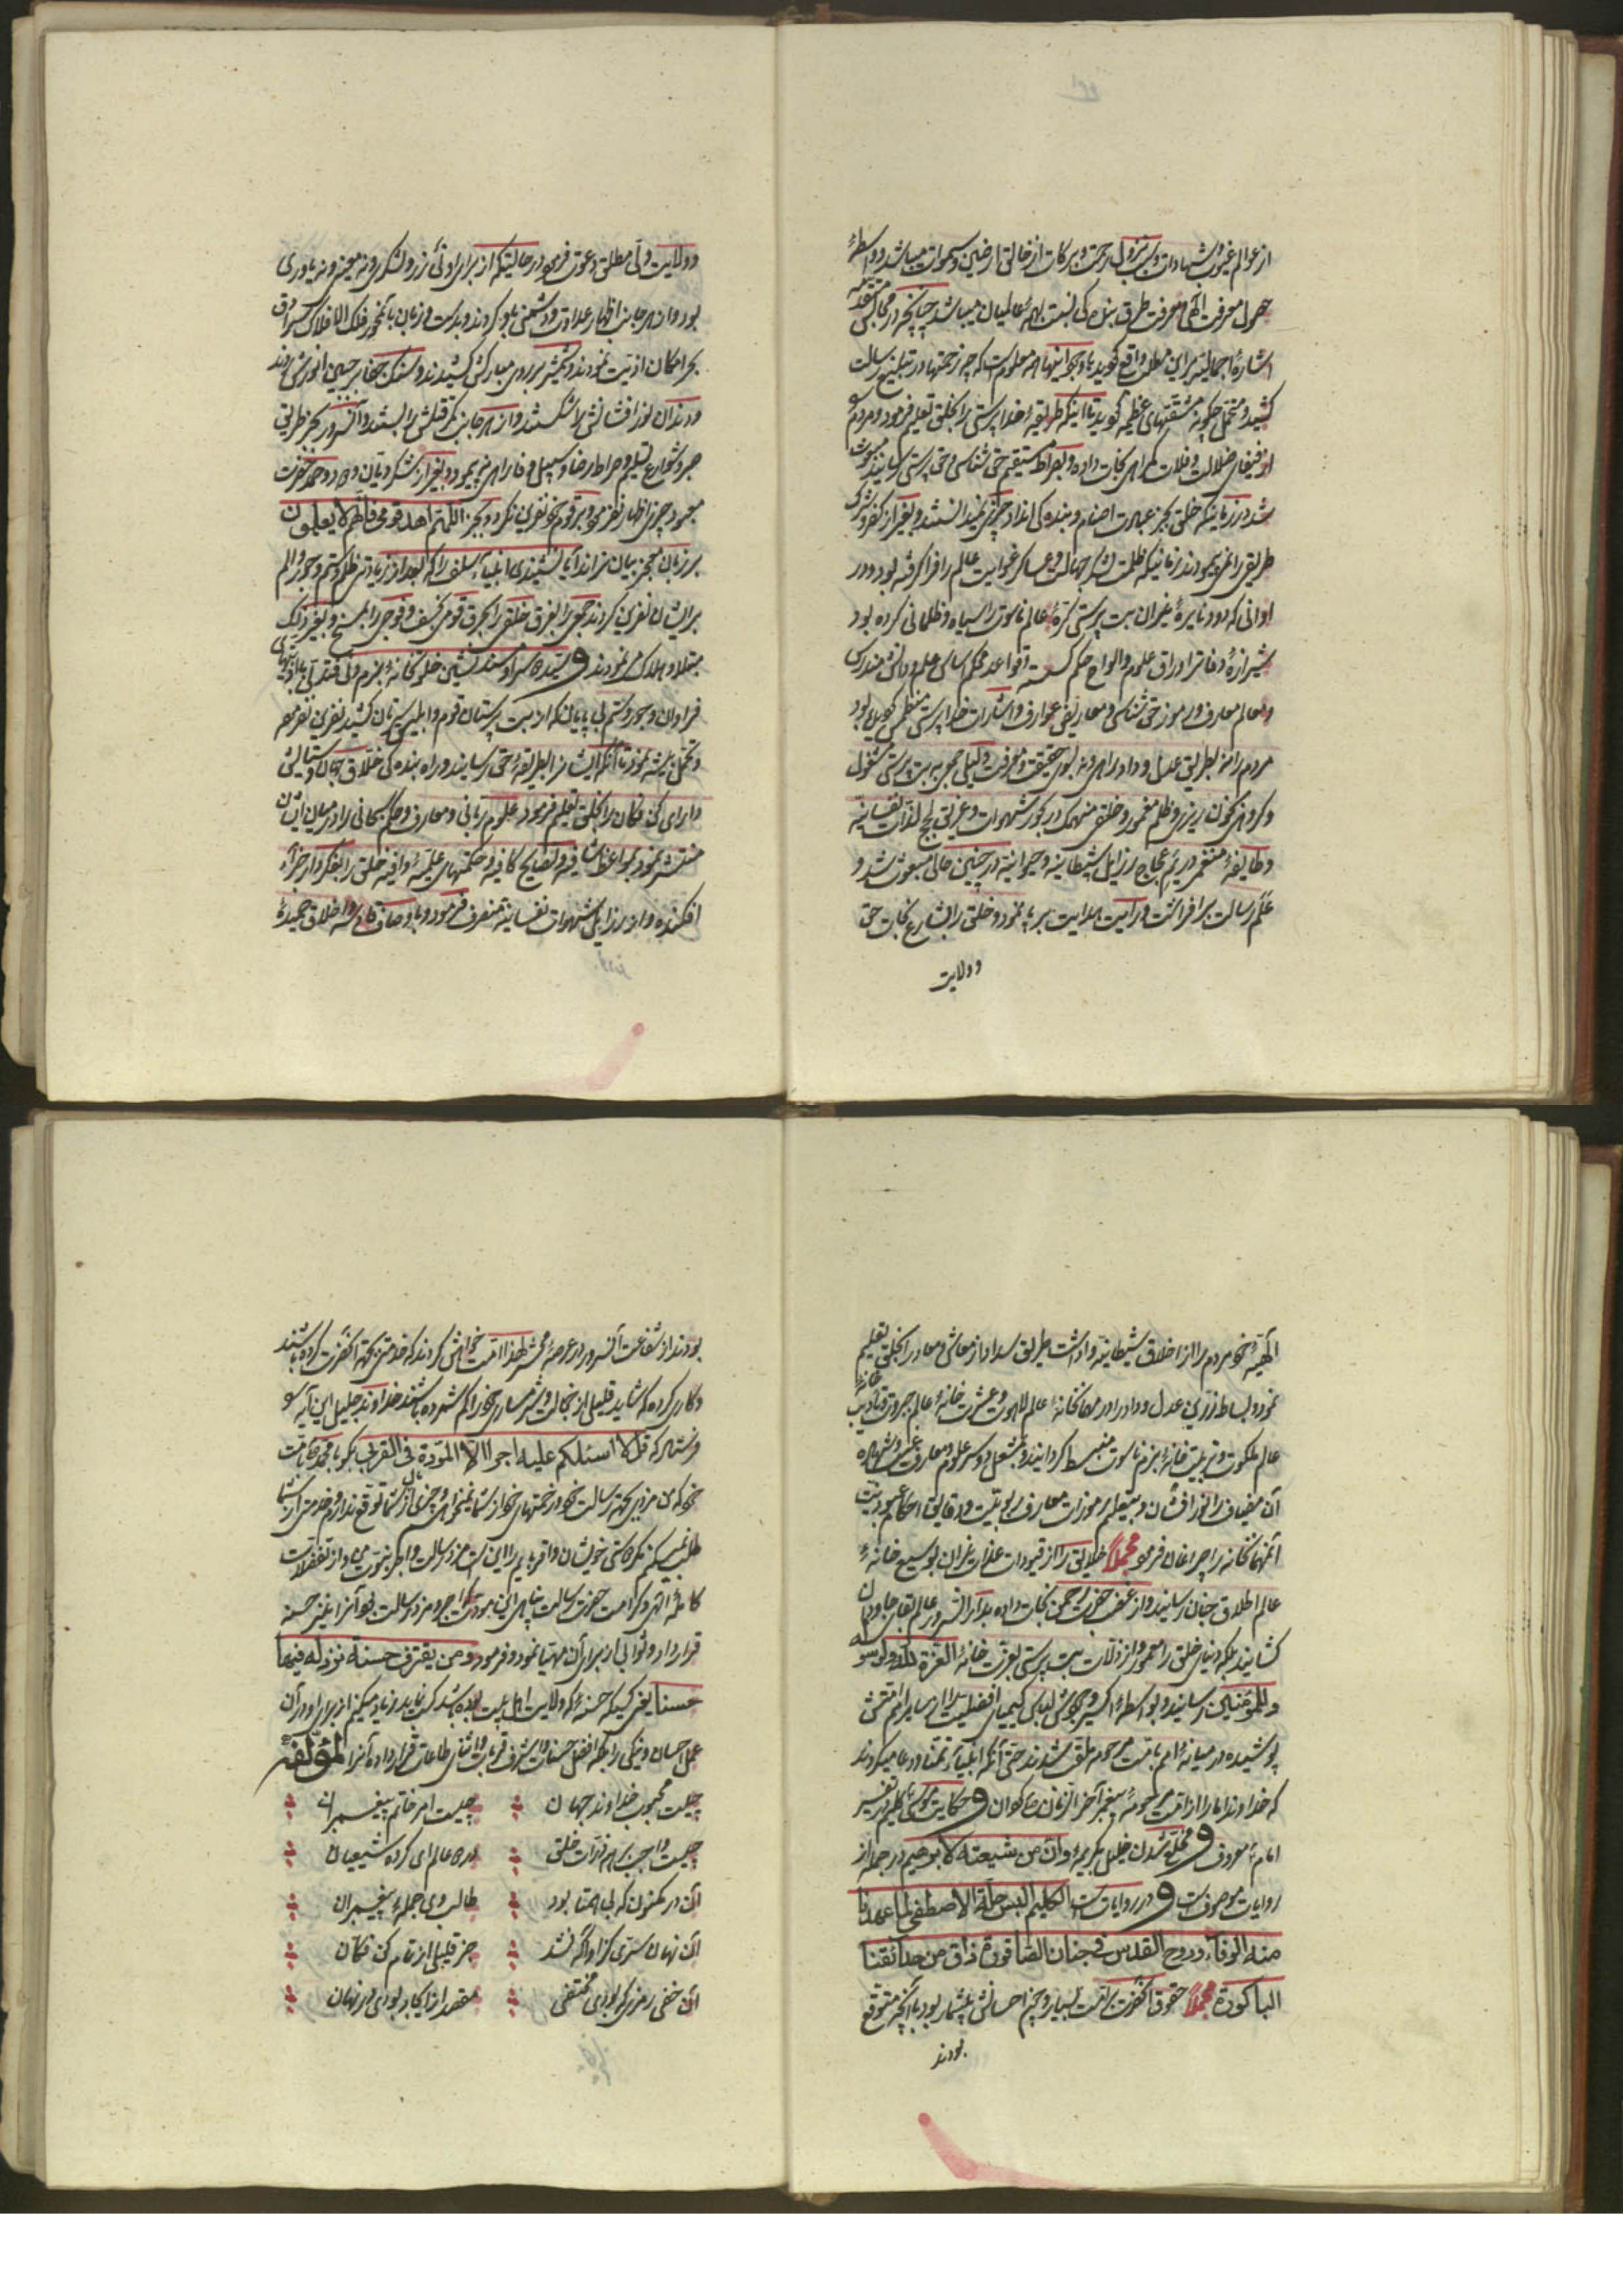 از عوالم غیوب و شهادات و سبب نزول رحمت و برکات از خالق ارضین و سموات میباشد و واسطهٔ
حصول معرفت الهی و معرفت طرق بندگی نسبت بهمهٔ عالمیان میباشد چنانچه در مجالس متقدمه
اشارهٔ اجمالیه براین مطلب واقع گردید با وجود اینها همه معلومست که چه زحمتها در تبلیغ رسالت
کشید و متحمل چگونه مشقتهای عظیمه گردید تا اینکه طریقهٔ خدا پرستی را بخلق تعلیم فرمود و مردم را
از فیفای ضلالت و فلات گمراهی نجات داده و بصراط مستقیم حق شناسی و حق پرستی رسانید مبعوث
شد در زمانیکه خلق بجز عبادت اصنام و بندگی انداد چیزی نمیدانستند و بغیر از کفر و شرک
طریقی را نمی پیمودند زمانیکه ظلمت لشکر جهالت و عساکر غوایت عالم را فرا گرفته بود و در
اوانی که دود نایرهٔ نیران بت پرستی کرهٔ عالم ناسوت را سیاه و ظلمانی کرده بود
شیرازهٔ دفاتر اوراق علوم و الواح حکم گسسته قواعد محکم اساس علم و دانش مندرس
و معالم معارف و رموز حق شناسی و معاریف عوارف و اشارات خدا پرستی منطمس گردیده بود
مردم را نه بطریق عدل و داد راهی و نه بسوی حقیقت و معرفت دلیلی جمعی به بت پرستی مشغول
و گروهی بخون ریزی و ظلم مغمور و خلقی منهمک در بحور شهوات و غریق لجج لذات نفسانیه
و طایفهٔ منغمر در یم عجاج رزایل شیطانیه و حیوانیه در چنین حالی مبعوث شد و
علم رسالت بر افراشت و رایت هدایت بر پا نمود و خلق را بشارع نجات حق
و ولایت
و ولایت ولی مطلق دعوت فرمود در حالیتیکه از برای او نه زر و لشکر و نه معین و نه یاوری
بود و از هر جانب اظهار عداوت و دشمنی باو کردند و بدست و زبان با آنخور فلک الافلاک
بحر امکان اذیت نمودند و شمشیر بر روی مبارکش کشیدند و سنگ جفا بر جبین انورش زدند
و دندان نور افشانش را شکستند و از هر جانب کمر قتلش را بستند و آنسرور بجز طریق
صبر و شوارع تسلیم و صراط رضا و سبیل وفا راهی نه پیمود و بغیر از شکر دیان و درود و حمد حضرت
معبود چیزی اظهار نفرمود و بر قوم خود نفرین نکرد و بجز اللهم اهد قومی فانهم لا یعلمون
بر زبان معجز بیان نراند آیا نشنیدی انبیاء سلف را که بعد از زیادتی ظلم و ستم و جور و الم
بر ایشان نفرین کردند جمعی را بغرق خلقی را بحرق قومی بخسف و فوجی را بمسخ و بغیر ذلک
مبتلا و هلاک می نمودند و سید ما سزاوار مسند نشین خلوتخانهٔ بزم دنی فتدلی با اذیتهای
فراوان و جور و ستم بی پایان که از بت پرستان قوم و ابلیس سیرتان کشید نفرین نفرمود
و تحمل پیشه نمود تا آنکه ایشانرا بطریقهٔ حق رسانید و راه بندگی خلاق جهان و ستایش
دارای کن فکان را بخلق تعلیم فرمود علوم ربانی و معارف و حکم سبحانی را در میان ایشان
منتشر نمود بمواعظ شافیه و نصایح کافیه و حکمتهای علیه وافیه خلق را بفکر دار جزاء
افکنده و از رزایل شهوات نفسانیه منصرف فرمود و باوصاف قادسه و اخلاق حمیدهٔ
الهیه و خو مردم را از اخلاق شیطانیه واداشت طریق سداد از معاش و معاد را بخلق تعلیم
نمود و بساط زرین عدل و داد را در مهانخانهٔ عالم لاهوت و عشرت خانهٔ عالم جبروت و تأدیب خانهٔ
عالم ملکوت و تربیت خانهٔ بزم ناسوت منبسط گردانید و بمشعل دو سر علوم و معارف غیب و شهاده
آن مضیاف را نور افشان و بتعلیم رموزات معارف ربوبیت و دقایق احکام عبودیت
آنمهانخانه را چراغان فرمود مجملاً خلایق را از قیودات عذاب نیران بوسیع خانهٔ
عالم اطلاق جنان رسانید و از غضب حضرت رحمن نجات داده بدار السرور عالم بقای جاودان
کشانید بلکه دنیای خلق را معمور و از ذلات بت پرستی بعزت خانهٔ العزة لله و لرسوله
و للمؤمنین رسانید و بواسطهٔ اکسیر وجودش لباس کیمیای افضلیت را از سایر امم امتش
پوشیده در میانهٔ امم بامت مرحومه ملقب شدند حتی آنکه انبیاء تمنا و دعا میکردند
که خداوندا ما را از امت مرحومهٔ پیغمبر آخر الزمان بگردان و حکایت موسی کلیم در تفسیر
امام معروف و مخلد شدن خلیل بکریمهٔ و ان من شیعته لابرهیم در جمله از
روایات موصوفست و در روایاتست الکلیم البس حلة الاصطفی لما عهدنا
منه الوفاء و روح القدس فی جنان الصاقورة ذاق من حدائقنا
الباکورة مجملاً حقوق آنحضرت بر امت بسیار و چیز احسانش بیشمار بود با آنچه متوقع
بودند
بودند از شفاعت آنسرور در عرصهٔ محشر لهذا امت خواهش کردند که خدمتی بجهة آنحضرت کرده باشند
و کاری کرده که شاید قلیلی از خجالت و شرمساری خود را کم شمرده باشند خداوند جلیل این آیه را
فرستاد که قل لا اسئلکم علیه اجرا الا المودة فی القربی بگو یا محمد بامت
خود که من مزدی بجهة رسالت خود و زحمتهای خود از شما نمیخواهم و چیزی از مال شما توقع ندارم و خدمتی از شما
طلب نمیکنم مگر دوستی خویشان و اقربایم را این است مزد رسالت و اجر نبوت من و از تفضلات
کاملهٔ الهی و کرامت حضرت رسالت پناهی این بود که اجر و مزد رسالت خود آنرا یعنی حسنه
قرار داد و ثوابی از برای آن مهیا نمود و فرمود و من یقترف حسنة نزد له فیها
حسنا یعنی کسیکه حسنهٔ که ولایت اهل بیت بوده باشد کسب نماید زیاد میکنم از برای او در آن
عمل احسان و نیکی را بلکه افضل حسنات و اشرف قربات و اثنای طاعات قرار داده آنرا لمؤلفه
چیست محبوب خداوند جهان ⁘ چیست امر خاتم پیغمبران ⁘
چیست واجب بر همه ذرات خلق ⁘ در دو عالم ای گروه شیعیان ⁘
آن در مکنون که بی همتا بود ⁘ طالب وی جملهٔ پیغمبران ⁘
آن نهان سری کزو آگه نشد ⁘ جز قلیلی از تمام کن فکان ⁘
آن خفی رمزی که بودی مختفی ⁘ مقصد از ایجاد بودی در نهان ⁘